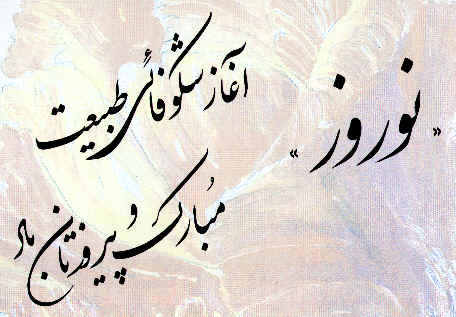 «نوروز»
آغاز شکوفائی طبیعت
مُبارک و پیروزتان باد